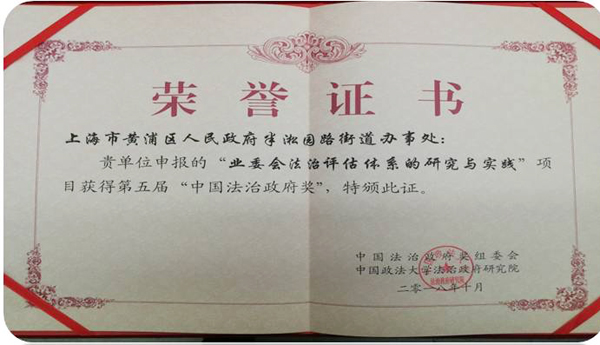 荣誉证书
上海市黄浦区人民政府半淞园路街道办事处：
贵单位申报的“业委会法治评估体系的研究与实践”项
目获得第五届“中国法治政府奖”，特颁此证。
中国法治政府奖组委会
中国政法大学法治政府研究院
二〇一八年十月